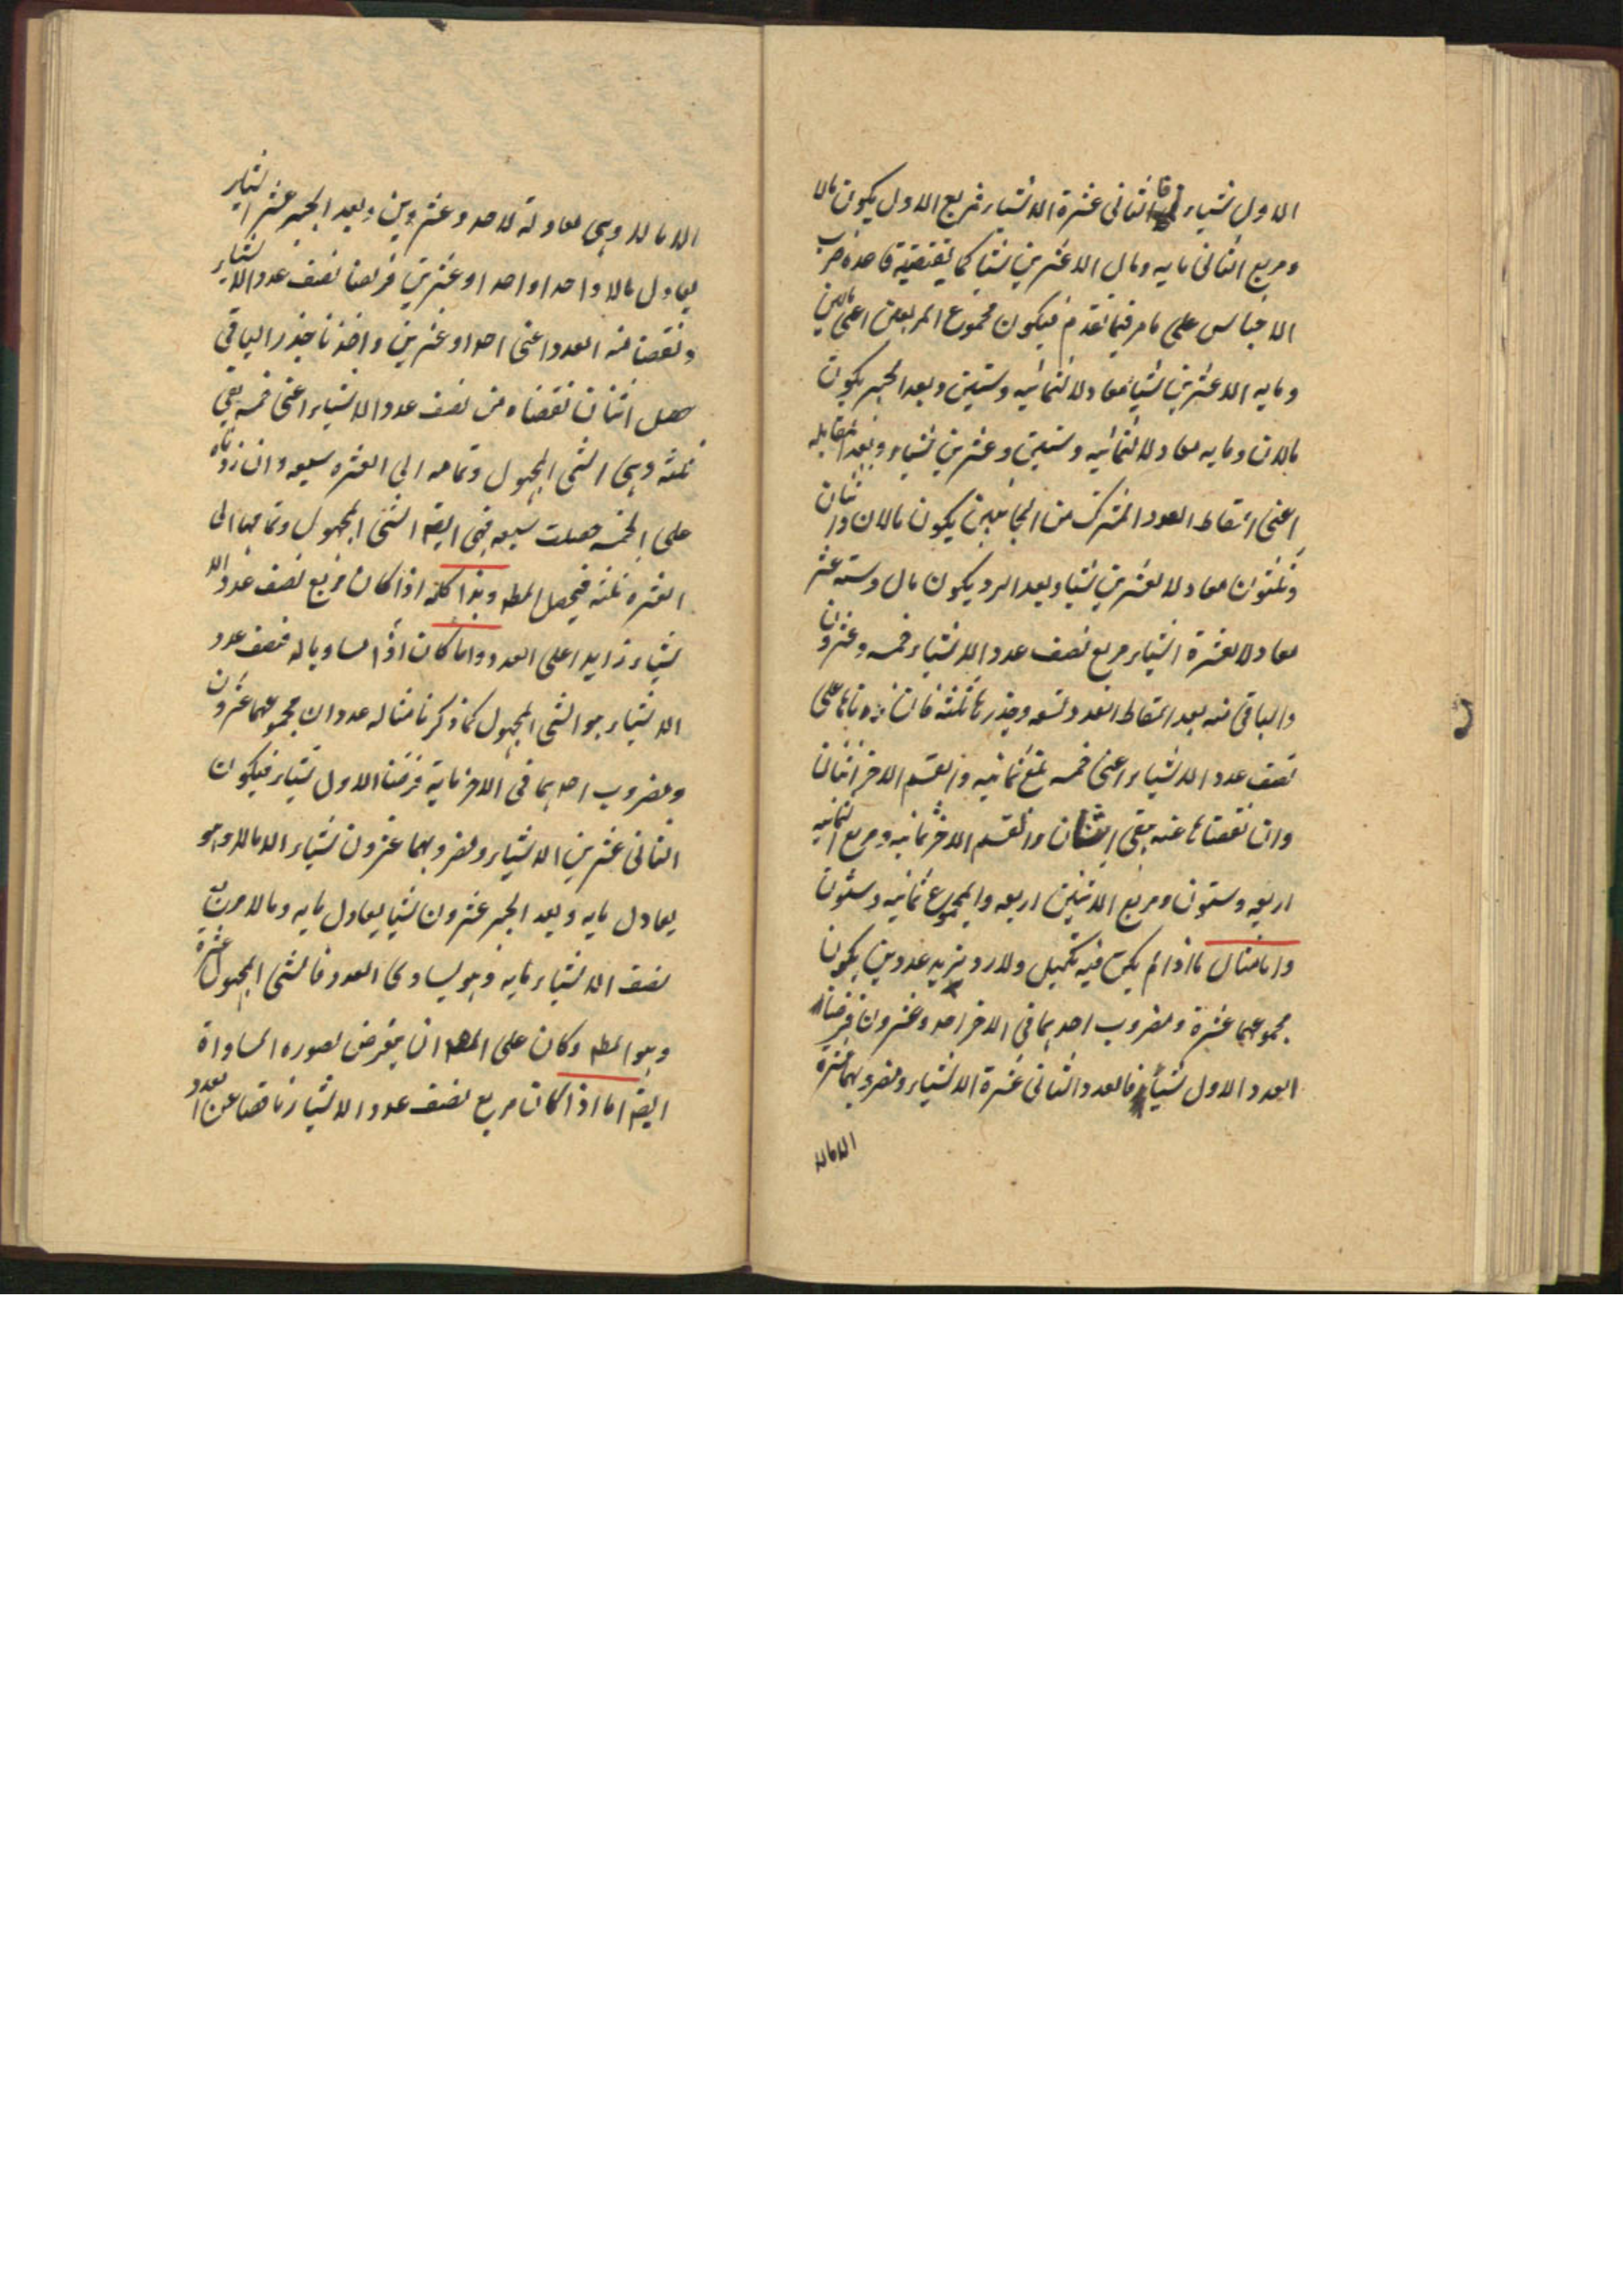 الاول شياء فالثانى عشرة الا شياء فمربع الاول يكون مالا
ومربع الثانى مايه ومال الا عشرين شيا كما يقتضيه قاعدة ضرب
الاجناس على ما مر فيما تقدم فيكون مجموع المربعين اعنى مالين
ومايه الا عشرين شيئا معادلا لثمانيه وستين وبعد الجبر يكون
مالان ومايه معادلا لثمانيه وستين وعشرين شياء وبعد المقابله
اعنى اسقاط العدد المشترك من الجانبين يكون مالان واثنان
وثلثون معادلا لعشرين شيا وبعد الرد يكون مال وسته عشر
معادلا لعشرة اشياء مربع نصف عدد الاشياء خمسه وعشرون
والباقى منه بعد اسقاط العدد تسعه وجذرها ثلثة فان زدناها على
نصف عدد الاشياء اعنى خمسه بلغ ثمانيه والقسم الاخر اثنان
وان نقصناها عنه بقى اثنان والقسم الاخر ثمانيه ومربع الثمانيه
اربعه وستون ومربع الاثنين اربعه والمجموع ثمانيه وستون
واما مثال ما اذا لم يكن فيه تكميل ولا رد نريد عددين يكون
مجموعهما عشرة ومضروب احدهما فى الاخر احد وعشرون فرضنا
العدد الاول شيأ فالعدد الثانى عشرة الا شياء ومضروبهما عشرة
الا مالا
الا مالا وهى معادلة لاحد وعشرين وبعد الجبر عشر اشياء
يعادل مالا واحدا واحدا وعشرين فربعنا نصف عدد الاشياء
ونقصنا منه العدد اعنى احدا وعشرين واخذنا جذر الباقى
حصل اثنان نقصناه من نصف عدد الاشياء اعنى خمسه بقى
ثلثه وهى الشى المجهول وتمامه الى العشره سبعه وان زدناه
على الخمسه حصلت سبعه فهى ايضا الشئ المجهول وتمامها الى
العشره ثلثه فيحصل المط وهذا كله اذا كان مربع نصف عدد الا
شياء زايدا على العدد واما كان اذا مساويا له فنصف عدد
الاشياء هو الشى المجهول كما ذكرنا مثاله عددان مجموعهما عشرون
ومضروب احدهما فى الاخر ماية فرضنا الاول شياء فيكون
الثانى عشرين الا شياء ومضروبهما عشرون شياء الا مالا وهو
يعادل مايه وبعد الجبر عشرون شيا يعادل مايه ومالا مربع
نصف الاشياء مايه وهو يساوى العدد فالشى المجهول عشرة
وهو المط وكان على المص ان يتعرض لصوره المساواة
ايضا اما اذا كان مربع نصف عدد الاشياء ناقصا عن العدد